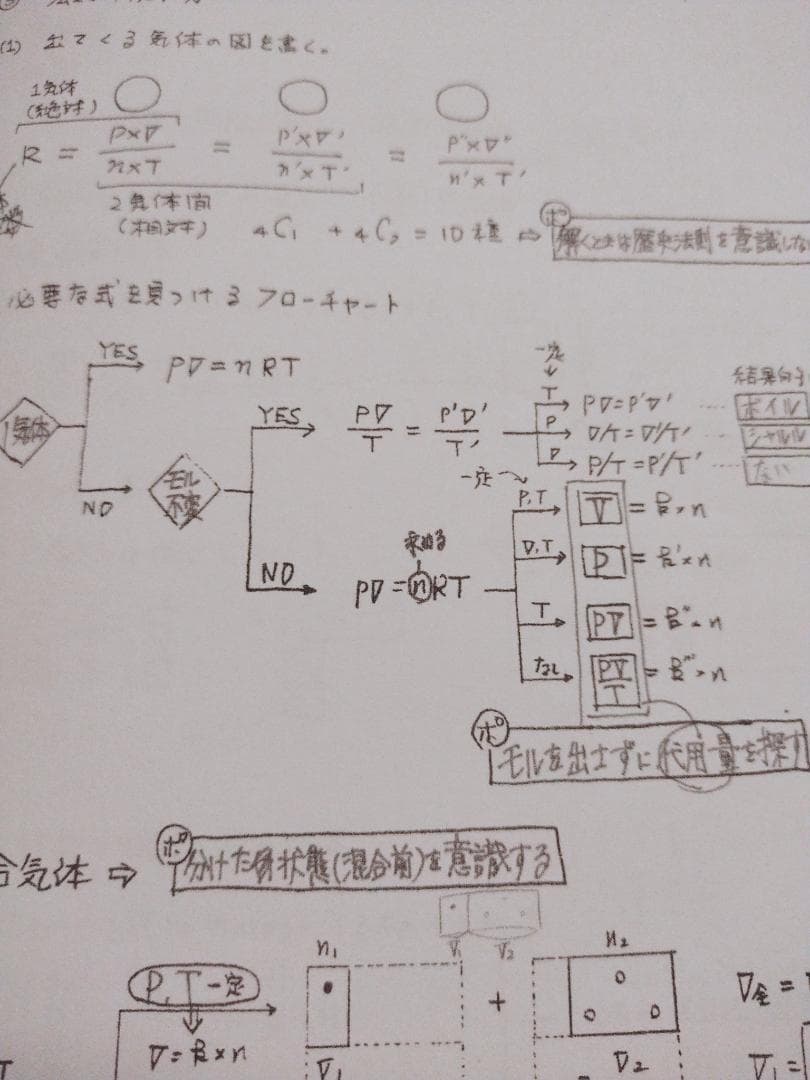 (1) 出てくる気体の図を書く。
1気体
(絶対)
R = P×V/n×T = P'×V'/n'×T' = P"×V"/n'×T'
2気体間
(相対) 4C1 + 4C2 = 10種 ⇨ ポ 解くときは歴史法則を意識しな
必要な式を見つけるフローチャート
1気体
YES PV = nRT
NO モル不変
YES PV/T = P'V'/T'
一定 結果的に
T PV = P'V' ボイル
P V/T = V'/T' シャルル
V P/T = P'/T' ない
NO PV = nRT
求める
一定
P,T V = k×n
V,T P = k'×n
T PV = k"×n
なし PV/T = k"'×n
ポ モルを出さずに代用量を探す
合気体 ⇨ ポ 分けた係状態(混合前)を意識する
V1 V2
P,T 一定
V = k×n
n1 + n2
V1 V2
V全 =
V1 =